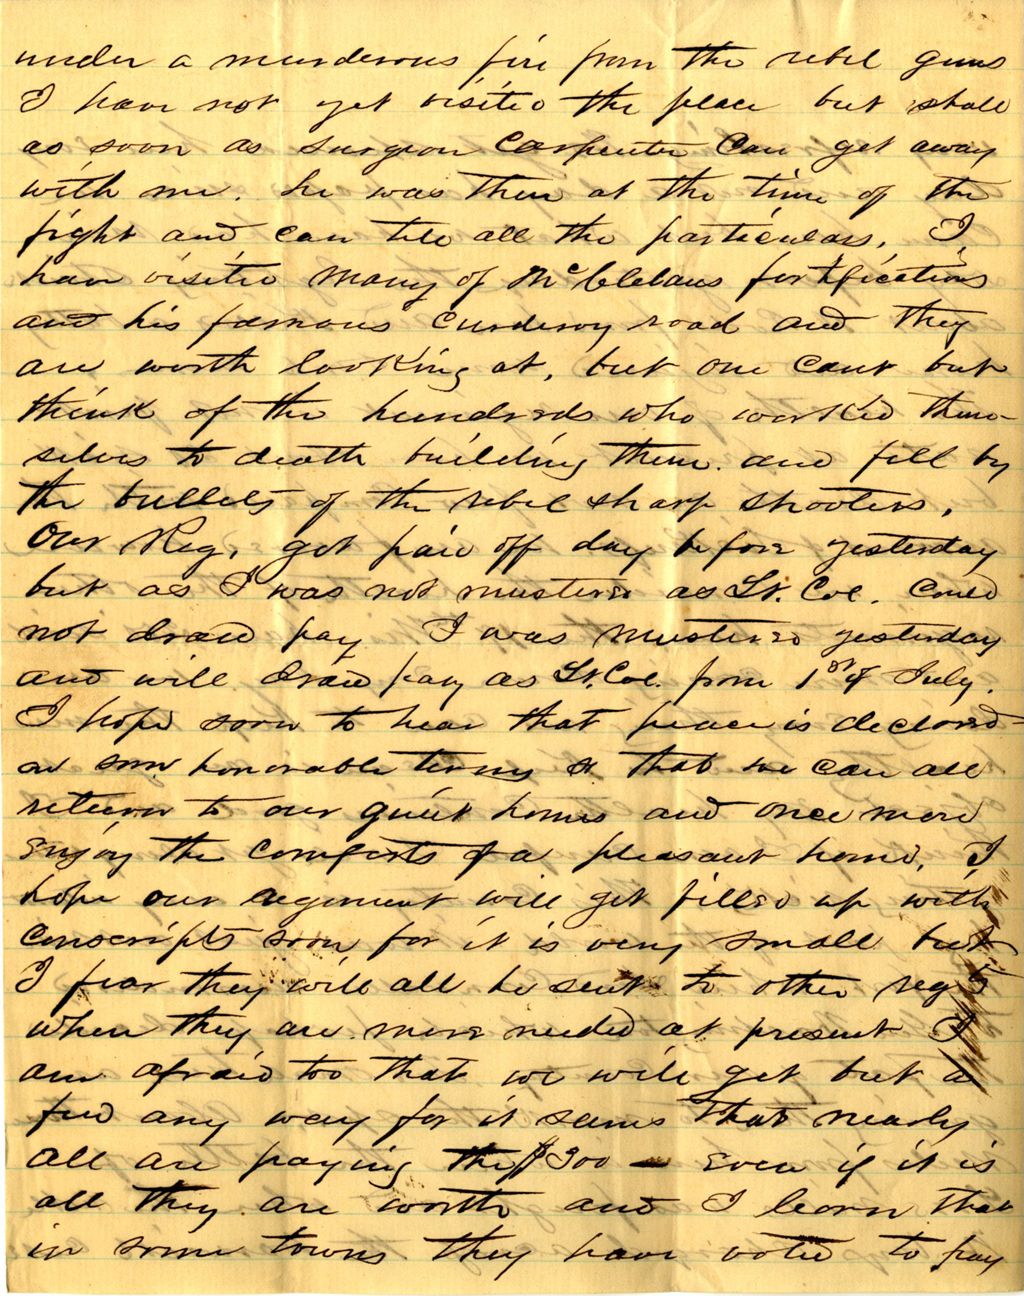 under a murderous fire from the rebel guns
I have not yet visited the place but shall
as soon as surgeon Carpenter can get away
with me. he was there at the time of the
fight and can tell all the particulars, I
have visited many of McClelans fortifications
and his famous curderoy road and they
are worth looking at, but one cant but
think of the hundreds who worked them-
selves to death building them. and fell by
the bullets of the rebel sharp shooters,
Our Reg, got paid off day before yesterday
but as I was not mustered as Lt. Col. could
not draw pay I was mustered yesterday
and will draw pay as Lt. Col. from 1st of July.
I hope soon to hear that peace is declared
on some honorable terms so that we can all
return to our quiet homes and once more
enjoy the comforts of a pleasant home, I
hope our regiment will get filled up with
conscripts soon for it is very small but
I fear they will all be sent to other regs
when they are more needed at present I
am afraid too that we will get but a
few any way for it seems that nearly
all are paying the $300 — even if it is
all they are worth and I learn that
in some towns they have voted to pay